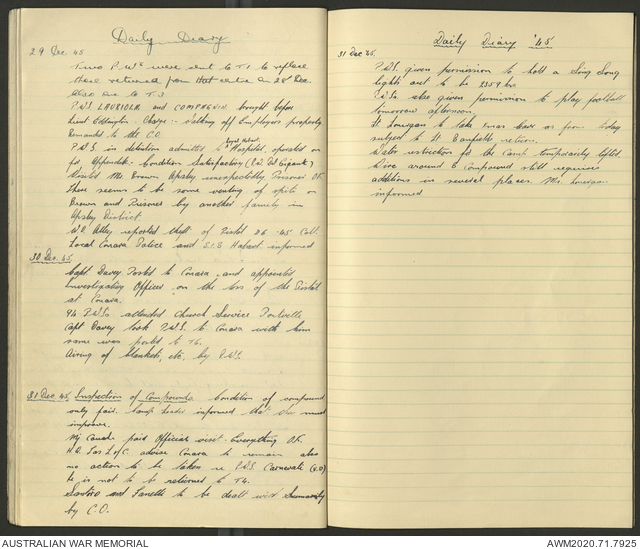 Daily Diary
29 Dec 45
Two P.W's were sent to T.1 to replace
those returned from Hut on 28 Dec.
Also one to T.3
P.W.S LAURIOLA and COMPAGNIN brought before
Lieut Eddington. Charge - Walking off Employers property
Remanded to the C.O.
P.W.S in detention admitted to Hospital operated on
for Appendix - Condition Satisfactory
Mrs Brown Apsley
There seems to be some venting of spite on
Brown and Prisoner by another family in
Apsley District
W.O. Alley reported theft of Pistol 26 .45 Colt
Local Conara Police and S.I.B Hobart informed
30 Dec. 45
Capt Davey Posted to Conara and appointed
Investigating Officer on the loss of the Pistol
at Conara.
94 P.W.S attended Church Service Pontville
Capt Davey took P.W.S to Conara with him
same was posted to T4.
Airing of blankets, etc. by P.W.S.
31 Dec 45. Inspection of Compounds Condition of compound
only fair. Camp Leader informed that this must
improve.
paid Official visit - Everything OK.
H.Q. Tas L of C. advise Conara to remain also
no action to be taken re P.W.S. Carnevali
he is not to be returned to T4.
Santoro and to be dealt with Summarily
by C.O.
Daily Diary '45
31 Dec 45.
P.W.S. given permission to hold a Sing Song
lights out to be 2359 hrs
P.W.S. also given permission to play football
tomorrow afternoon.
Lt Lonergan to take over back as from today
subject to Lt return.
Water restriction for the Camp temporarily lifted.
Wire around to Compound still requires
additions in several places. Mr. Lonergan
informed
AUSTRALIAN WAR MEMORIAL
AWM2020.71.7925